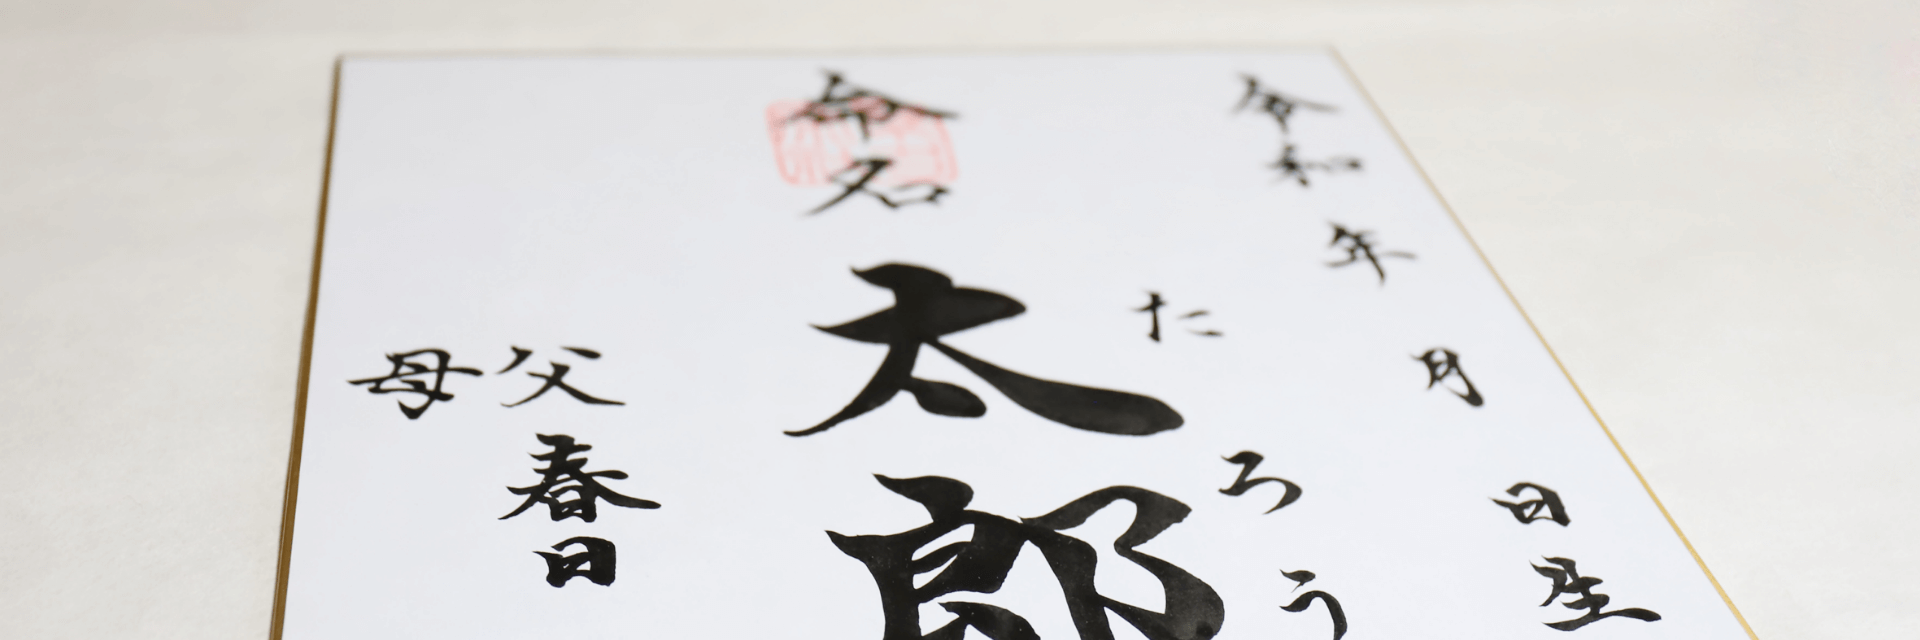 令和 年 月 日生
たろう
命名 太郎
父 春日
母